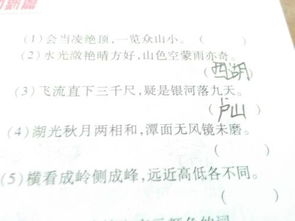 (1)会当凌绝顶,一览众山小。( )
(2)水光潋艳晴方好,山色空蒙雨亦奇。
(西湖)
(3)飞流直下三千尺,疑是银河落九天。
(庐山)
(4)湖光秋月两相和,潭面无风镜未磨。
( )
(5)横看成岭侧成峰,远近高低各不同。
( )